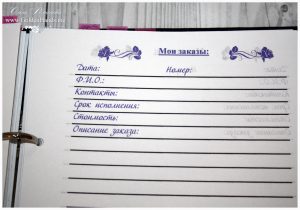 Мои заказы:
Дата: Номер:
Ф.И.О.:
Контакты:
Срок исполнения:
Стоимость:
Описание заказа: